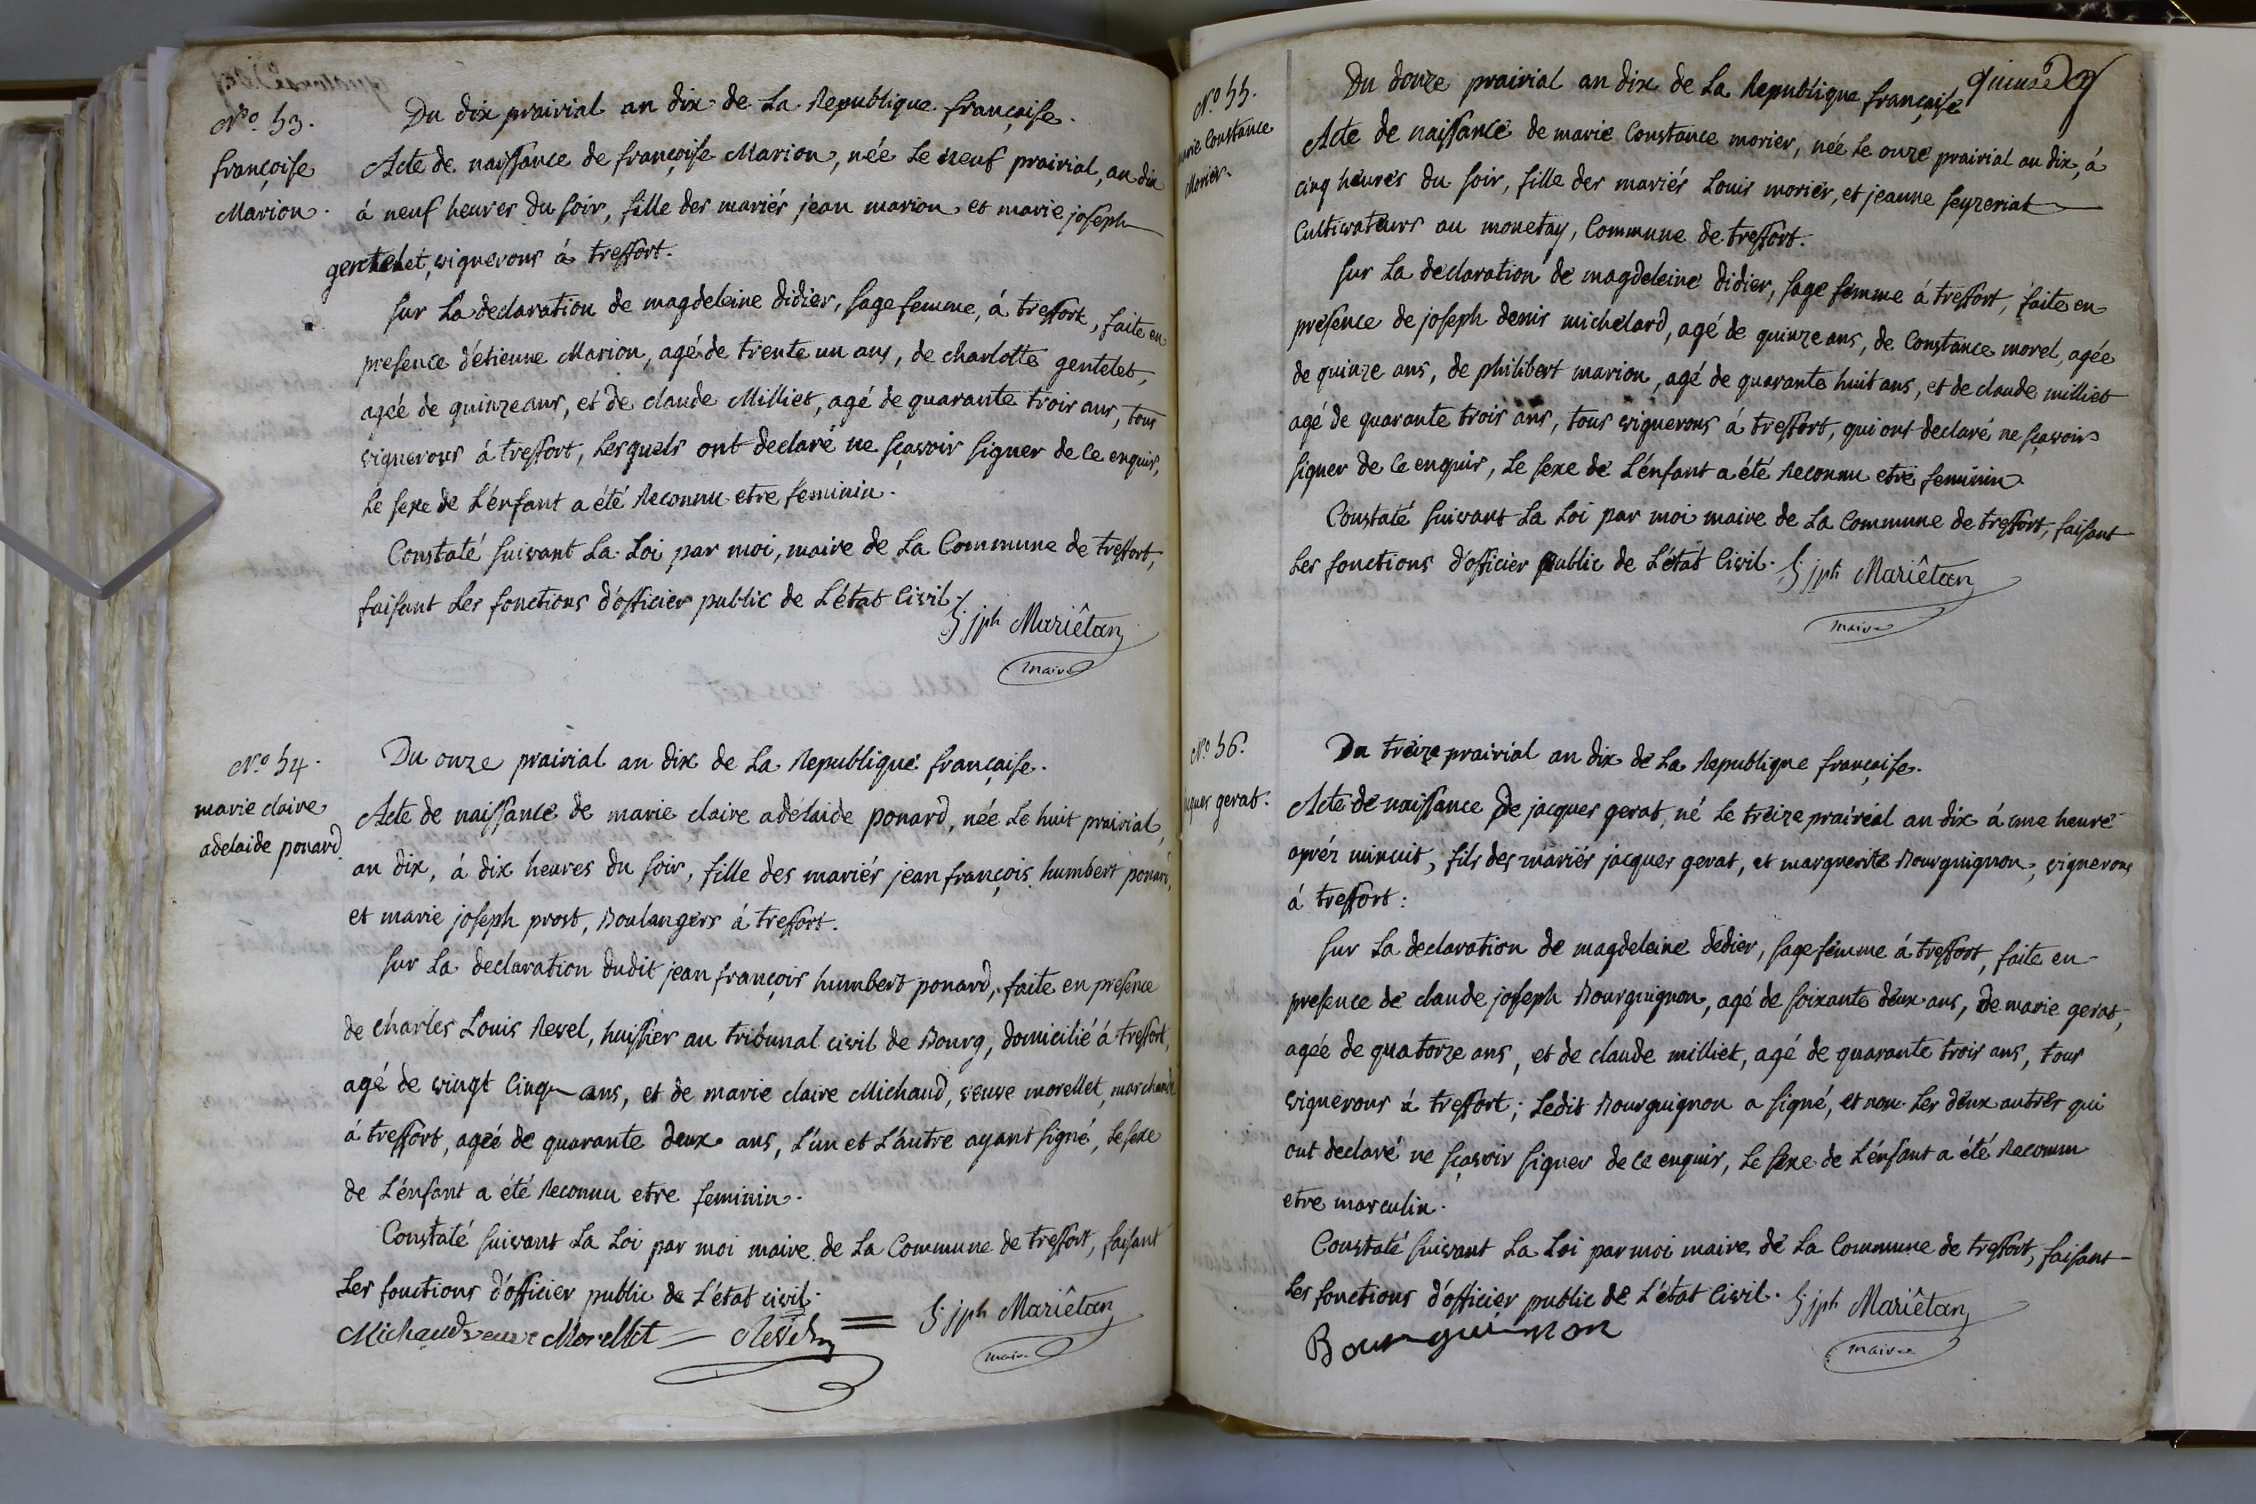 N.o 53.
françoise
Marion.
Du dix prairial an dix de La Republique françoise.
Acte de naissance de françoise Marion, née Le neuf prairial, an dix
á neuf heures du soir, fille des mariés jean marion et marie joseph
gentelet, vignerons á treffort.
sur La declaration de magdeleine didier, sage femme, á treffort, faite en
presence d'etienne Marion, agé de trente un ans, de charlotte gentelet,
agée de quinze ans, et de claude Milliet, agé de quarante trois ans, tous
vignerons á treffort, Lesquels ont declaré ne sçavoir signer de ce enquis,
Le sexe de L'énfant a été Reconnu etre feminin.
Constaté suivant La Loi par moi, maire de La Commune de treffort,
faisant Les fonctions d'officier public de L'état Civil.
jph Mariêtan
maire
N.o 54.
marie claire
adelaide ponard
Du onze prairial an dix de La Republique françaisse.
Acte de naissance de marie claire adélaide ponard, née Le huit prairial,
an dix, á dix heures du soir, fille des mariés jean françois humbert ponard,
et marie joseph prost, Boulangers á treffort.
sur La declaration dudit jean françois humbert ponard, faite en presence
de charles Louis Revel, huissier au tribunal civil de Bourg, domicilié á treffort,
agé de vingt Cinq ans, et de marie claire Michaud, veuve morellet, marchande
á treffort, agée de quarante deux ans, L'un et L'autre ayant signé, Le sexe
de L'énfant a été Reconnu etre feminin.
Constaté suivant La Loi par moi maire de La Commune de treffort, faisant
Les fonctions d'officier public de L'état civil.
Michaud veuve Morellet — Revel = jph Mariêtan
maire
quinze
N.o 55.
marie Constance
Morier.
Du douze prairial an dix de La Republique françaisse
Acte de naissance de marie Constance morier, née Le onze prairial an dix, á
cinq heures du soir, fille des mariés Louis morier, et jeanne seyzeriat
Cultivateurs au monetay, Commune de treffort.
sur La declaration de magdeleine didier, sage femme á treffort, faite en
presence de joseph denis michelard, agé de quinze ans, de Constance morel, agée
de quinze ans, de philibert marion, agé de quarante huit ans, et de claude milliet
agé de quarante trois ans, tous vignerons á treffort, qui ont declaré ne sçavoir
signer de ce enquis, Le sexe de L'énfant a été Reconnu etre feminin
Constaté suivant La Loi par moi maire de La Commune de treffort, faisant
Les fonctions d'officier public de L'état Civil. jph Mariêtan
maire
N.o 56.
jacques gerat.
Du treize prairial an dix de La Republique françaisse.
Acte de naissance de jacques gerat, né Le treize prairial an dix á une heure
aprés minuit, fils des mariés jacques gerat, et marguerite Bourguignon, vignerons
á treffort:
sur La declaration de magdeleine dedier, sage femme á treffort, faite en
presence de claude joseph Bourguignon, agé de soixante deux ans, de marie gerat,
agée de quatorze ans, et de claude milliet, agé de quarante trois ans, tous
vignerons á treffort; Ledit Bourguignon a signé, et non Les deux autres qui
ont declaré ne sçavoir signer de ce enquis, Le sexe de L'énfant a été Reconnu
etre masculin.
Constaté suivant La Loi par moi maire de La Commune de treffort, faisant
Les fonctions d'officier public de L'état Civil. jph Mariêtan
Bourguinon
maire